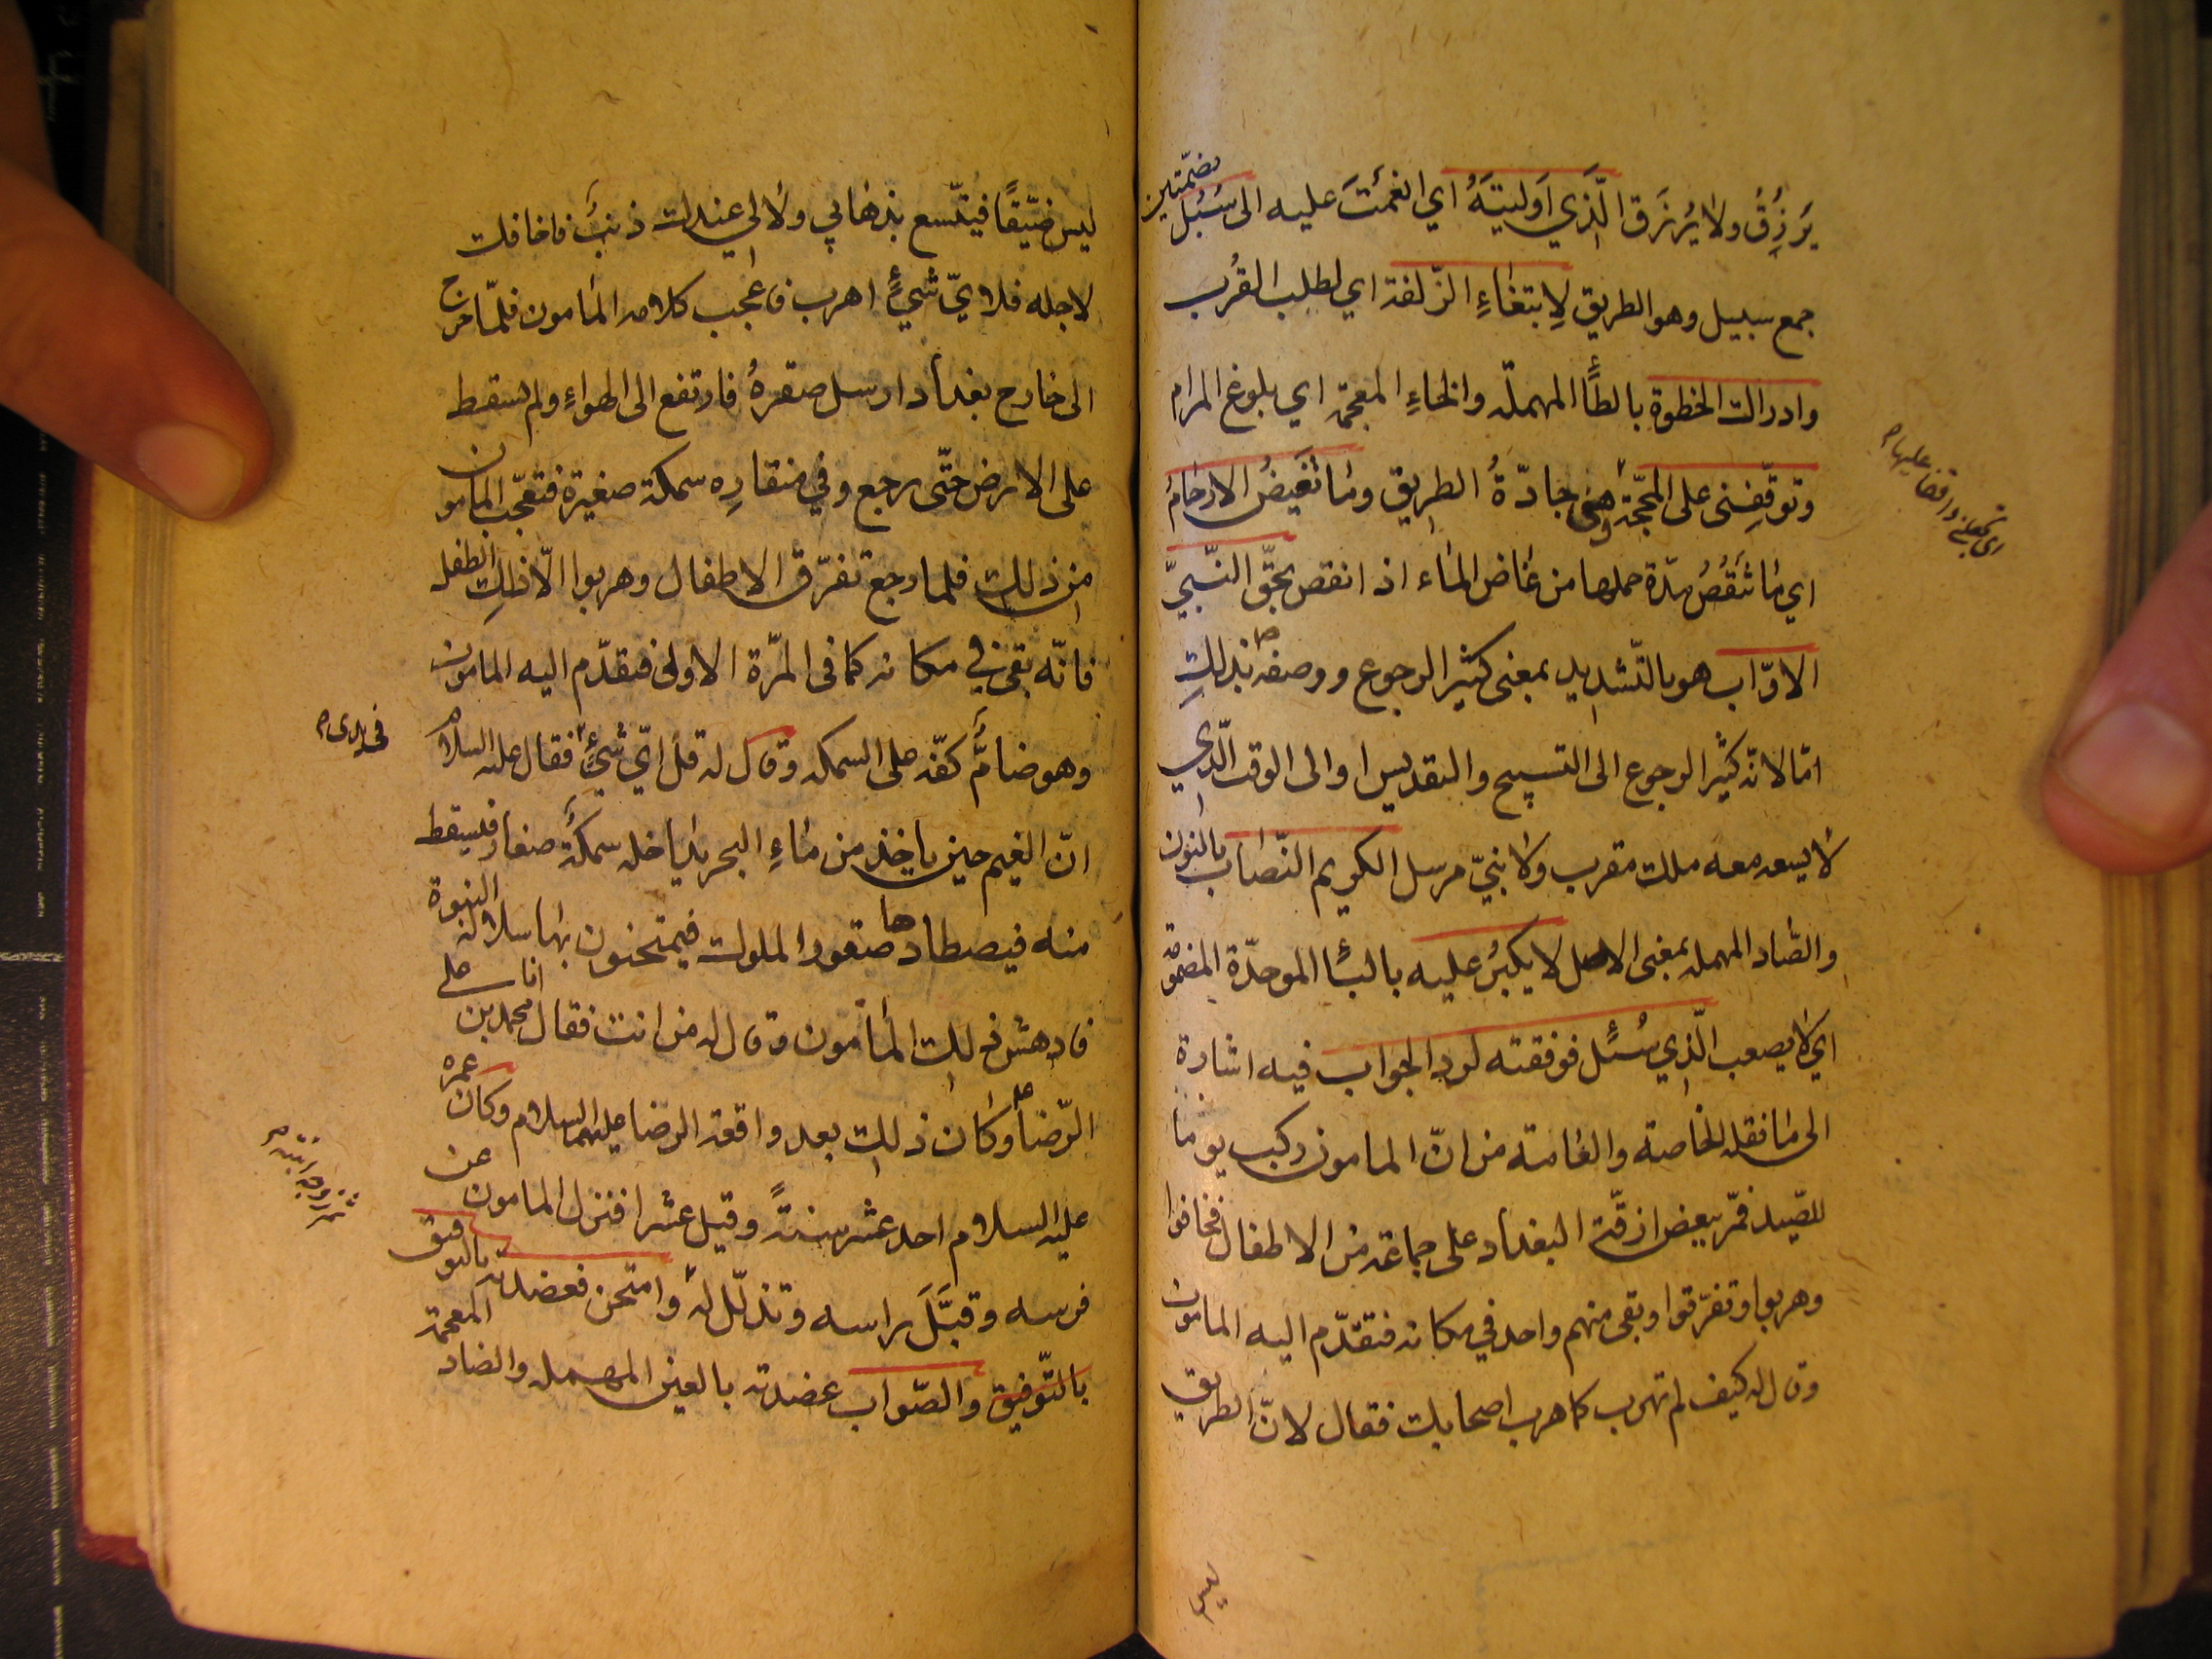 يَرْزُقُ ولا يُرْزَق الَّذي اَوليتَهُ اي انعمْتَ عليه الى سُبُل بضمّتين
جمع سبيل وهو الطريق لِابتغاءِ الزّلفة اي لطلب القُرب
وادراك الخطوة بالطاء المهملة والخاءِ المعجمة اي بلوغ المرام
وتوقّفِنى على المحجّة وهى جادّةُ الطريق وما تَغيضُ الارحام
اي ما تَنقُصُ مدّة حملها من غاض الماء اذ انقص بحقّ النّبيّ
الاوّاب هو بالتّشديد بمعنى كثير الرجوع ووصفه ص بذلك
امّا لانّه كثير الرجوع الى التسبيح والتقديس او الى الوقت الّذي
لا يسعه معه ملك مقرب ولا نبيّ مرسل الكريم النّصاب بالنون
والصّاد المهملة بمعنى الاصل لا يكبرُ عليه بالبا الموحدّة المضمومة
اي لا يصعب الّذي سُئل فوفقته لرد الجواب فيه اشارة
الى ما نقله الخاصة والعامة من انّ المامون ركب يوما
للصّيد فمّر ببعض ازقّة البغداد على جماعة من الاطفال فخافوا
وهربوا وتفرّقوا وبقى منهم واحد في مكانه فتقدّم اليه المامون
وقال له كيف لم تهرب كما هرب اصحابك فقال لانّ الطريق
ليس
اي تجعلني واقفا عليها م
ليس ضيّقًا فيتّسع بذهابي ولا لي عندك ذنب فاخافك
لاجله فلايّ شيءٍ اهرب فاعجب كلامه المأمون فلمّا خرج
الى خارج بغداد ارسل صقرهُ فارتفع الى الهواءِ ولم يسقط
على الارض حتّى رجع وفي منقارِه سمكة صغيرة فتعجّب المأمون
من ذلك فلما رجع تفرّق الاطفال وهربوا الّا ذلك الطفل
فانّه بقى في مكانه كما فى المرّة الاولى فتقدّم اليه المامون
وهو ضامٌّ كفّه على السمكه وقال له قل ايّ شيءٍ فقال عليه السلام
فى يدى م
انّ الغيم حين ياخذ من ماءِ البحر يداخله سمكٌ صغار فيسقط
منه فيصطادها صقور الملوك فيمتحنون بها سلالة النبوة
فادهش ذلك المأمون وقال له من انت فقال انا محمد بن على
الرّضا وكان ذلك بعد واقعة الرضا عليهما السلام وكان عمره
عليه السلام احد عشر سنةً وقيل عشرا فنزل المامون عن
فرسه وقبّلَ راسه وتذلّل له وامتحن فعضدته بالتوفيق
ثم زوجه ابنته م
بالتّوفيق والصّواب عضدته بالعين المهمله والضاد المعجمة